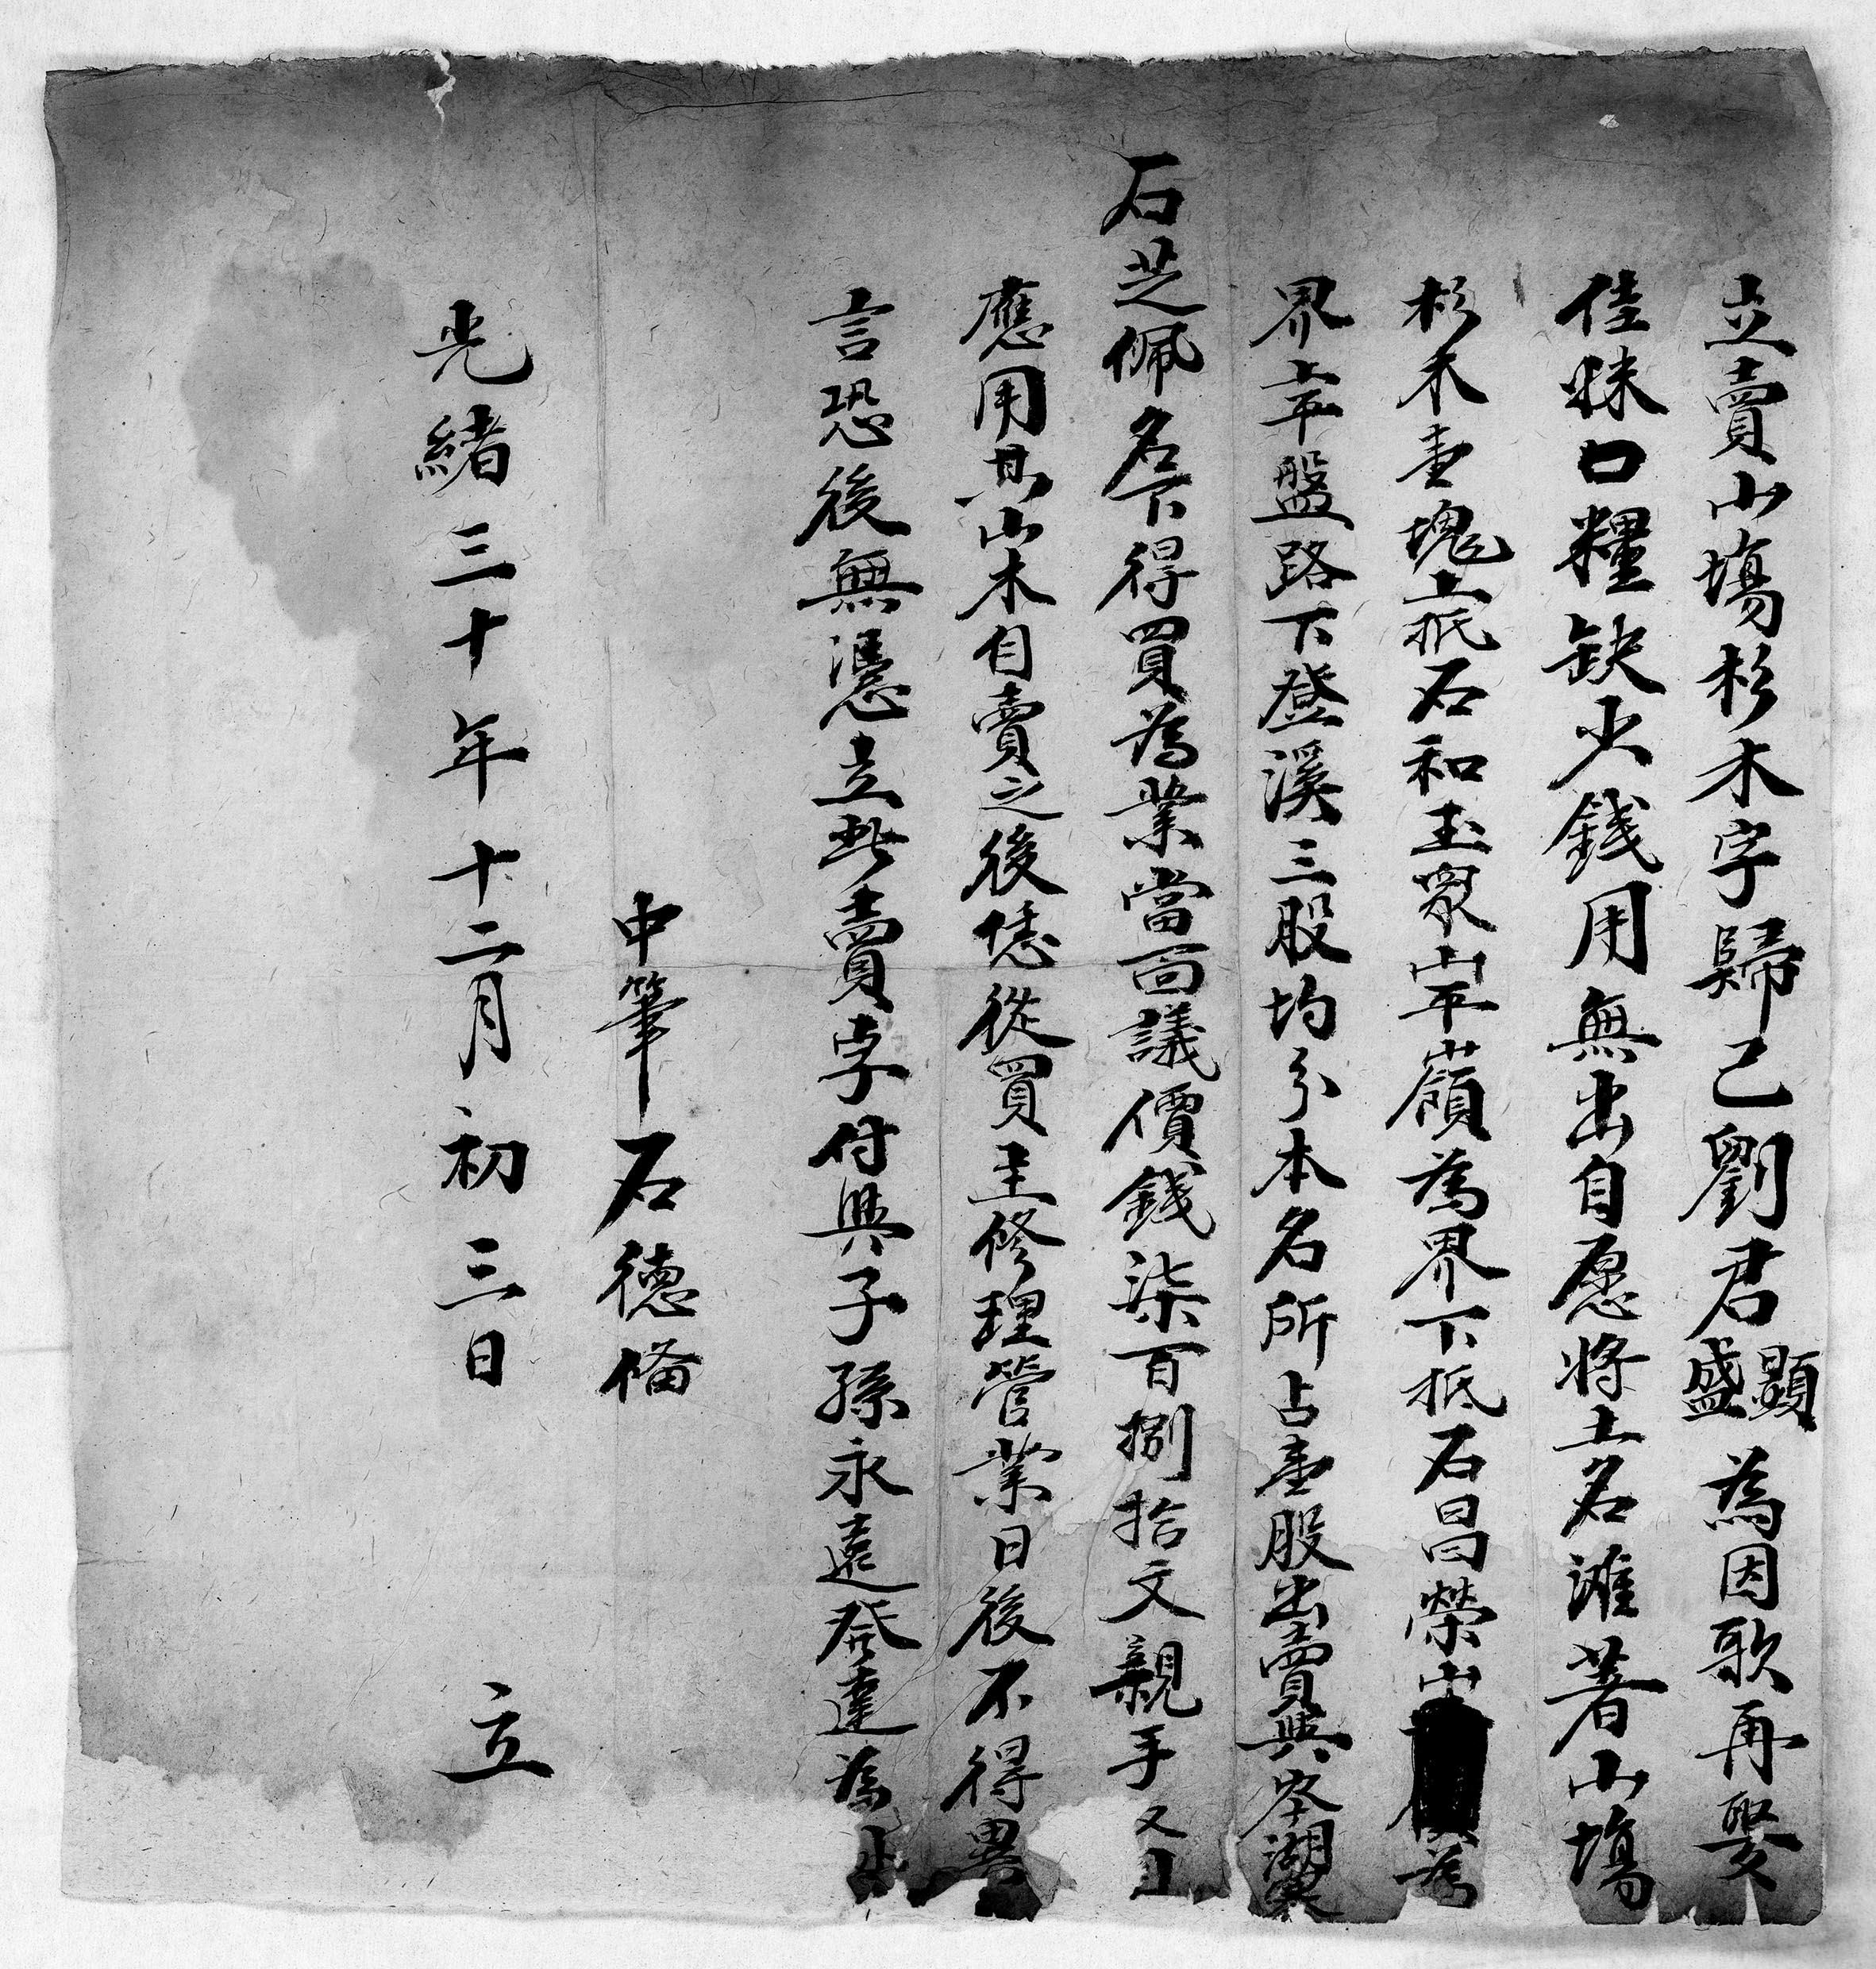 立賣山塲杉木字歸己劉君顯盛為因歌再娶
佳妹口糧缺少錢用無出自愿將土名滩著山塲
杉木壹塊上抵石和玉衆山平嶺為界下抵石昌榮山為
界上平盤路下登溪三股均分本名所占壹股出賣與岑湖
石芝佩名下得買為業當面議價錢柒百捌拾文親手
應用其山木自賣之後恁從買主修理管業日後不得異
言恐後無憑立此賣字付與子孫永遠發達為
中筆石德俻
光緒三十年十二月初三日 立